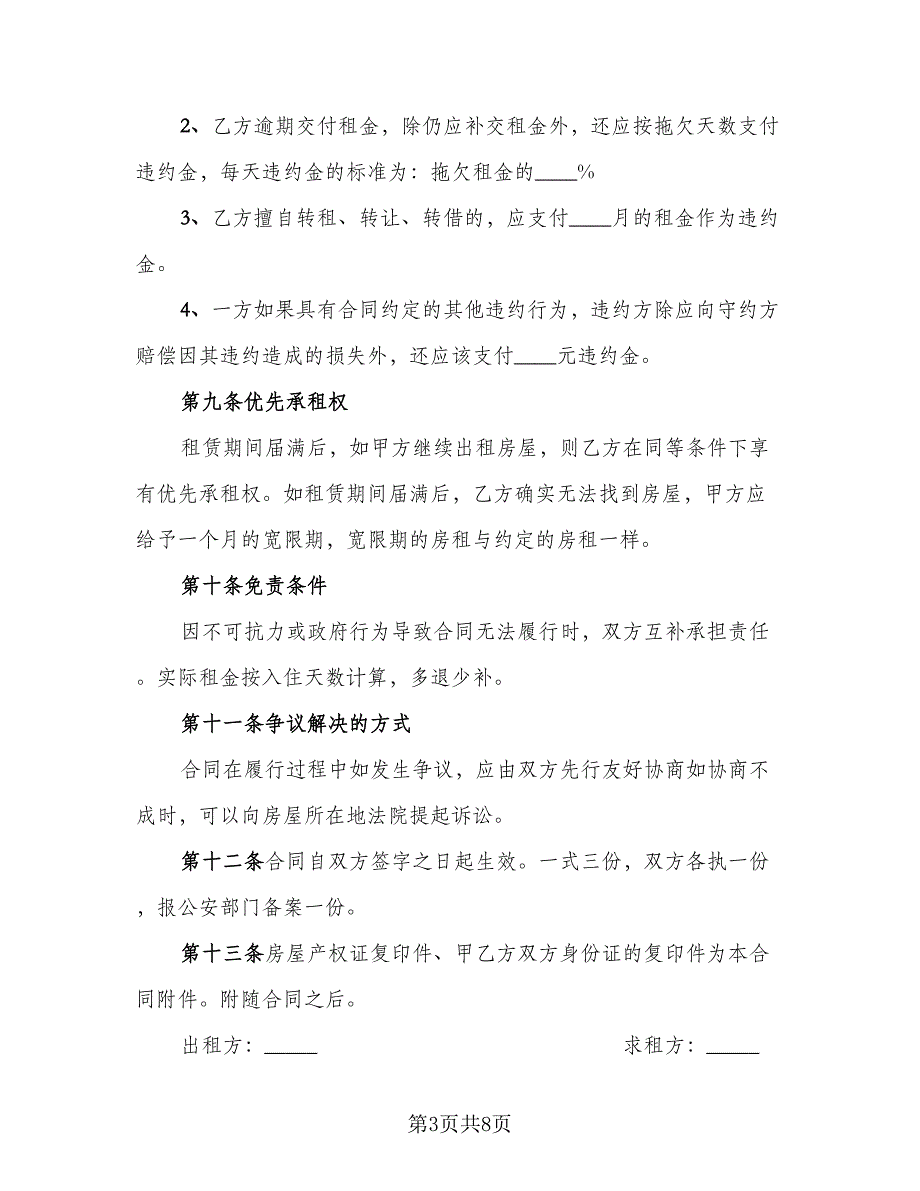 2、乙方逾期交付租金，除仍应补交租金外，还应按拖欠天数支付
违约金，每天违约金的标准为：拖欠租金的____%
3、乙方擅自转租、转让、转借的，应支付____月的租金作为违约
金。
4、一方如果具有合同约定的其他违约行为，违约方除应向守约方
赔偿因其违约造成的损失外，还应该支付____元违约金。
第九条优先承租权
租赁期间届满后，如甲方继续出租房屋，则乙方在同等条件下享
有优先承租权。如租赁期间届满后，乙方确实无法找到房屋，甲方应
给予一个月的宽限期，宽限期的房租与约定的房租一样。
第十条免责条件
因不可抗力或政府行为导致合同无法履行时，双方互补承担责任
。实际租金按入住天数计算，多退少补。
第十一条争议解决的方式
合同在履行过程中如发生争议，应由双方先行友好协商如协商不
成时，可以向房屋所在地法院提起诉讼。
第十二条合同自双方签字之日起生效。一式三份，双方各执一份
，报公安部门备案一份。
第十三条房屋产权证复印件、甲乙方双方身份证的复印件为本合
同附件。附随合同之后。
出租方：_____ 求租方：_____
第3页共8页